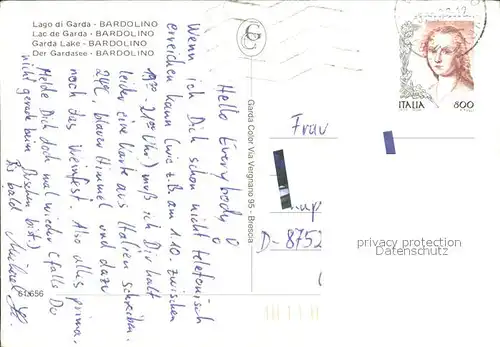 Lago di Garda - BARDOLINO
Lac de Garda - BARDOLINO
Garda Lake - BARDOLINO
Der Gardasee - BARDOLINO
Hello Everybody!
Wenn ich Dich schon nicht telefonisch
erreichen kann (wie z.B. am 1.10. zwischen
19⁰⁰ - 21⁰⁰ Uhr) muß ich Dir halt
leider eine Karte aus Italien schreiben.
24°C, blauer Himmel und dazu
noch das Weinfest. Also alles prima.
Melde Dich doch mal wieder (falls Du
nicht gerade beim bist.)
Bis bald
61656
Garda Color Via Vergnano 95 - Brescia
ITALIA 800
Frau
D-8752
privacy protection
Datenschutz